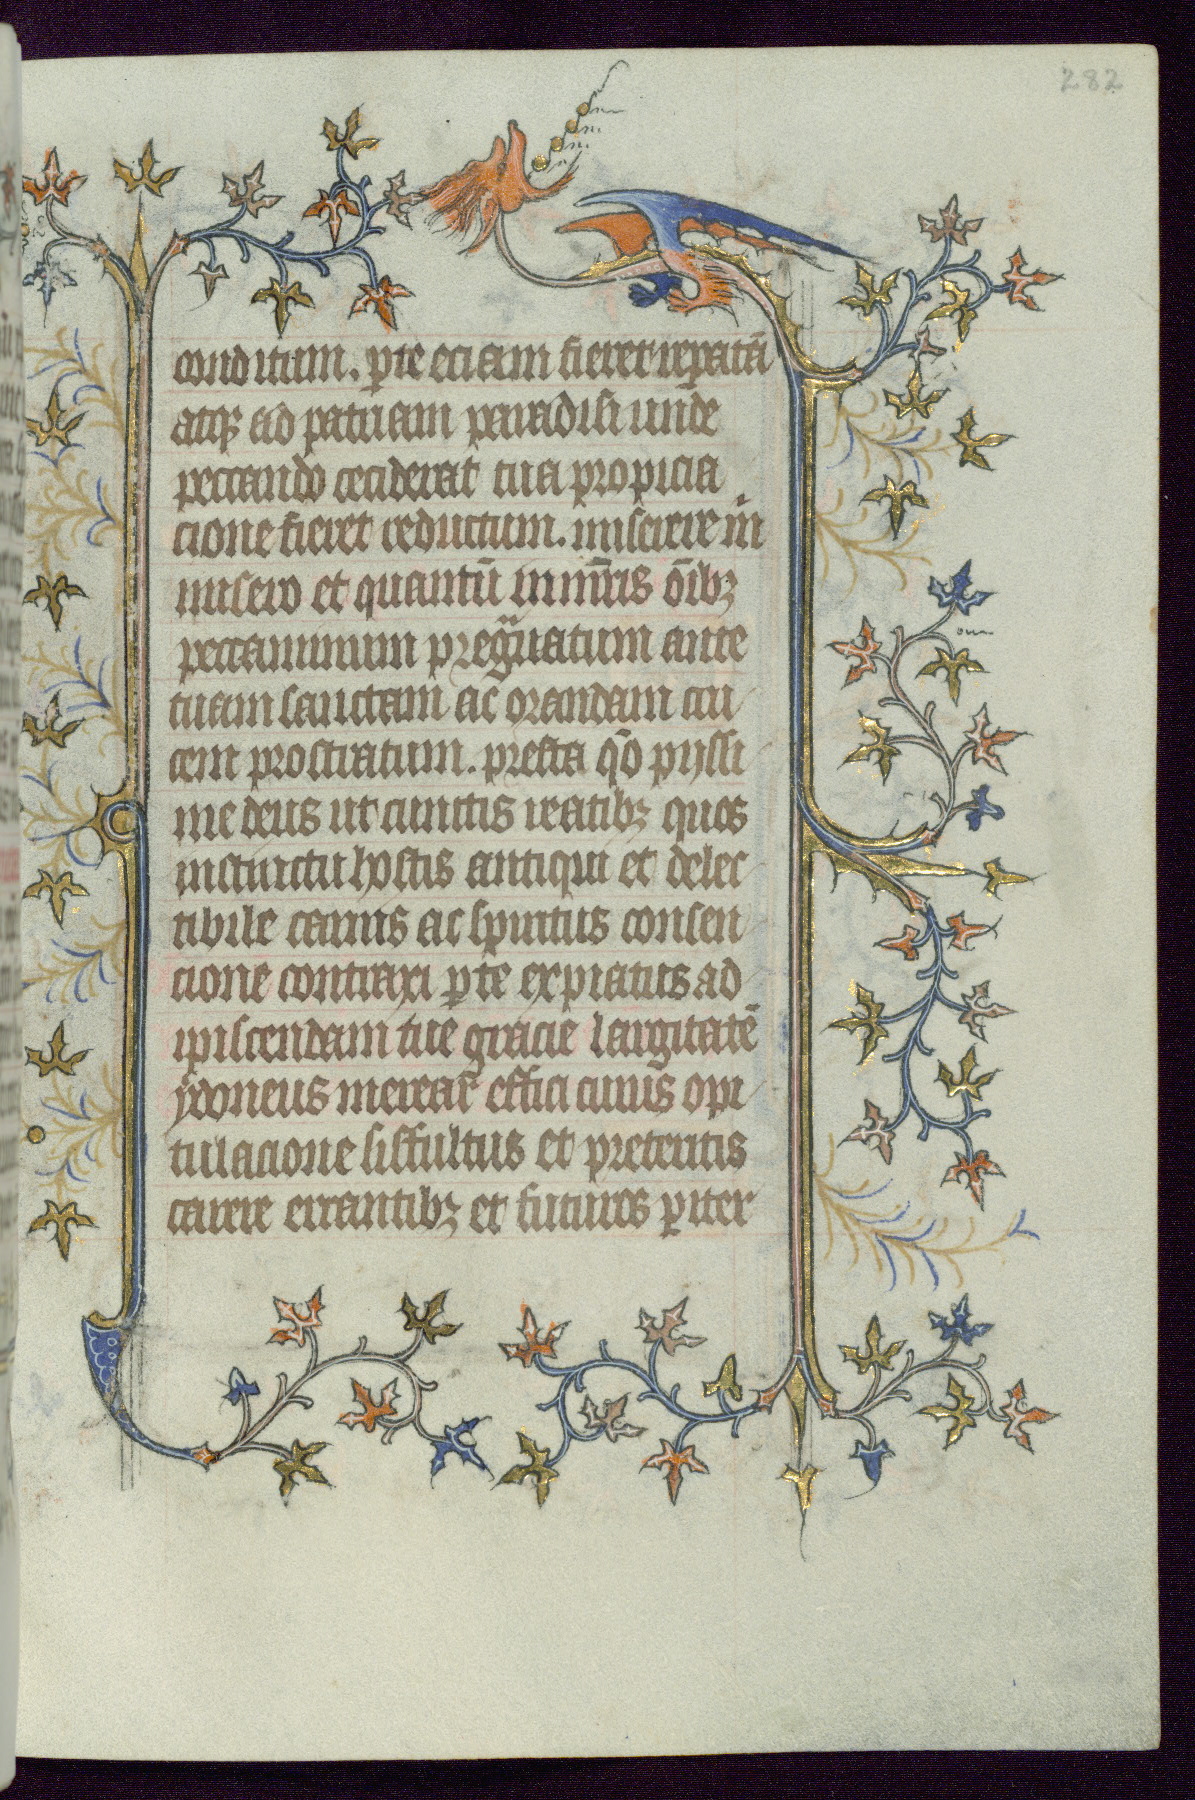 282
conditum. ꝑte eciam fieret reꝑatū
atqꝫ ad patriam paradisi unde
peccando ceciderat tua propicia
cione fieret reductum. miserere m̄
misero et quantū inm̄ris om̄ibꝫ
peccaminum pregͥuatum ante
tuam sanctam ac orandam cru
cem prostratum. presta q̄o pijssi
me deus ut cunctis reatibꝫ quos
instinctu hostis antiqui et delec
tibile carnis ac spiritus consen
cione contraxi ꝑte expiatus ad
ipiscendam tue gracie largitatē
ydoneus merear effici cuius opi
tulacione suffultus et preteritis
carere errantibꝫ et futuros ꝑiter